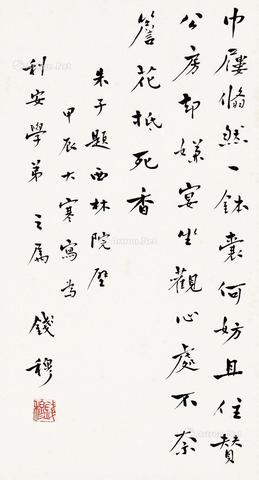 巾屨翛然一鉢囊何妨且住贊
公房却嫌宴坐觀心處不奈
簷花抵死香
朱子題西林院壁
甲辰大寒寫為
利安學弟之屬 錢穆